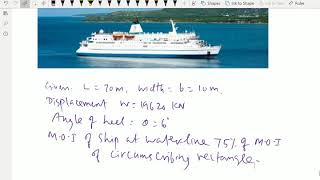 Shapes
Ink to Shape
Ruler
Given L = 70m, width = b = 10m.
Displacement W = 19620 KN
Angle of heel = θ = 6°
M.O.I of Ship at waterline 75% of M.O.I
of circumscribing rectangle.